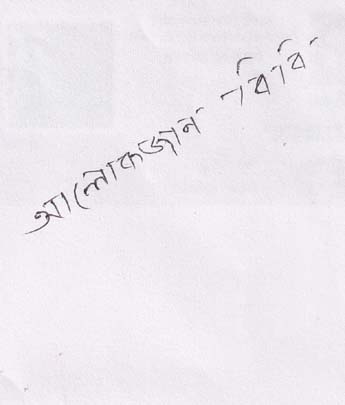 আলোকজান বিবি